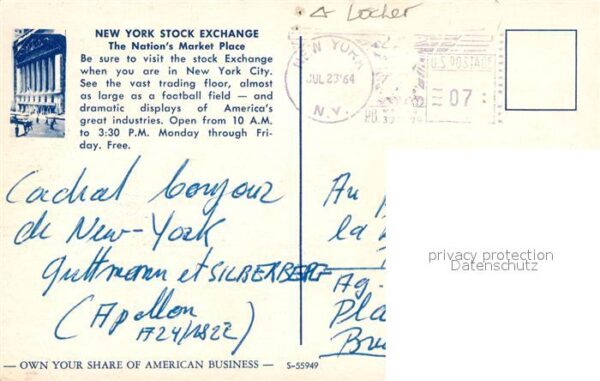 NEW YORK STOCK EXCHANGE
The Nation's Market Place
Be sure to visit the stock Exchange
when you are in New York City.
See the vast trading floor, almost
as large as a football field — and
dramatic displays of America's
great industries. Open from 10 A.M.
to 3:30 P.M. Monday through Fri-
day. Free.
Locher
NEW YORK
JUL 23 '64
N.Y.
U.S. POSTAGE
07
Cachal bonjour
de New-York
Guttmann et SILBERBERG
(Apollon
Au
la
Ag.
Pla
Bru
privacy protection
Datenschutz
— OWN YOUR SHARE OF AMERICAN BUSINESS —
S-55949